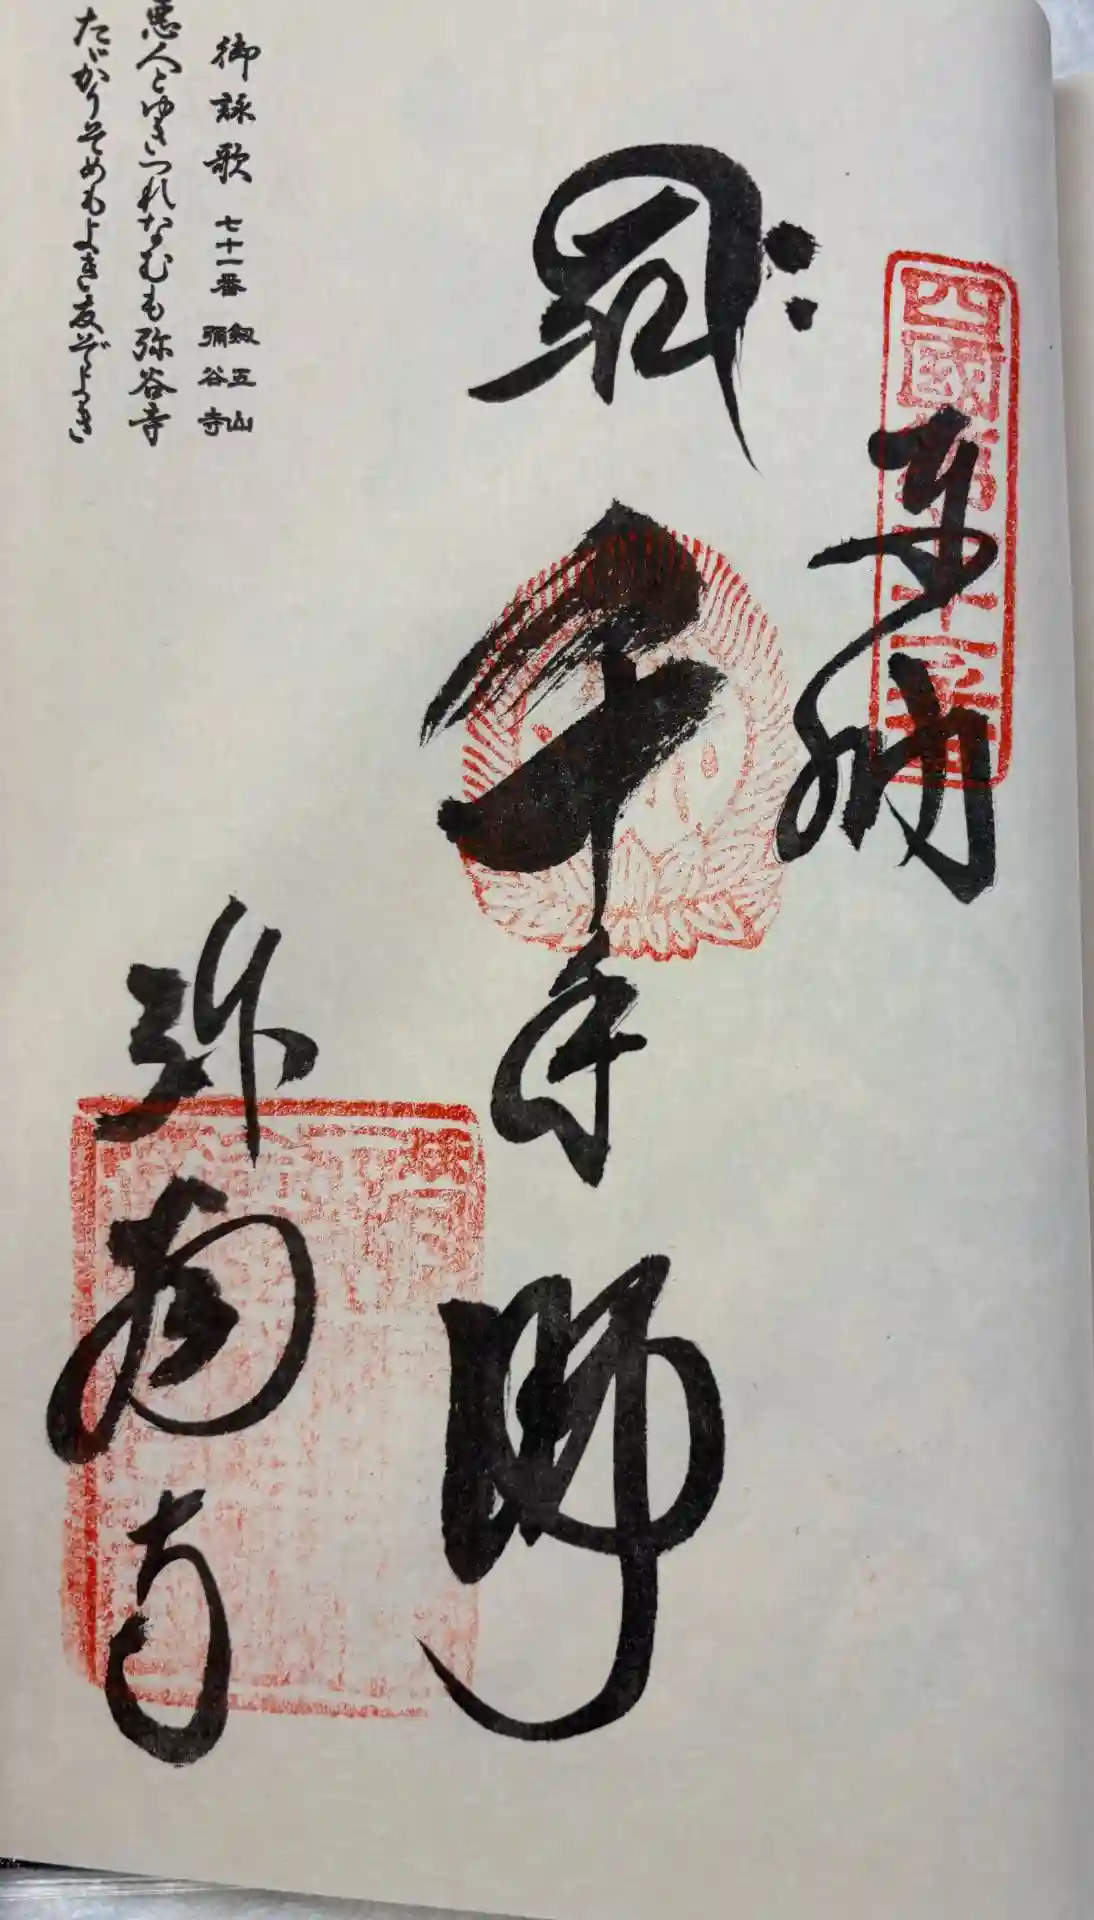 四國第七十一番
奉納
千手師
弥谷寺
御詠歌 七十一番 劔五山 彌谷寺
悪人とゆきつれなむも弥谷寺
たゞかりそめもよき友ぞよき